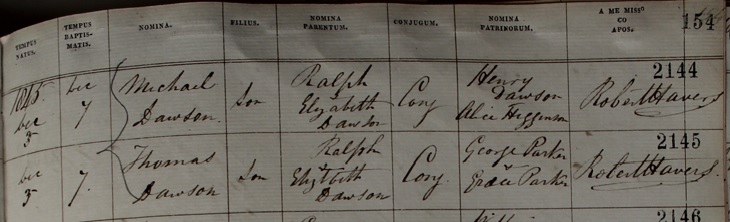 154
TEMPUS NATUS.
TEMPUS BAPTIS- MATIS.
NOMINA.
FILIUS.
NOMINA PARENTUM.
CONJUGUM.
NOMINA PATRINORUM.
A ME MISSº CO APOS.
2144
1845. Dec 5
Dec 7
Michael
Dawson
Son
Ralph
Elizabeth
Dawson
Conj
Henry
Dawson
Alice Higginson
Robert Havers
2145
Dec 5
7.
Thomas
Dawson
Son
Ralph
Elizabeth
Dawson
Conj.
George Parker
Grace Parker
Robert Havers.
2146